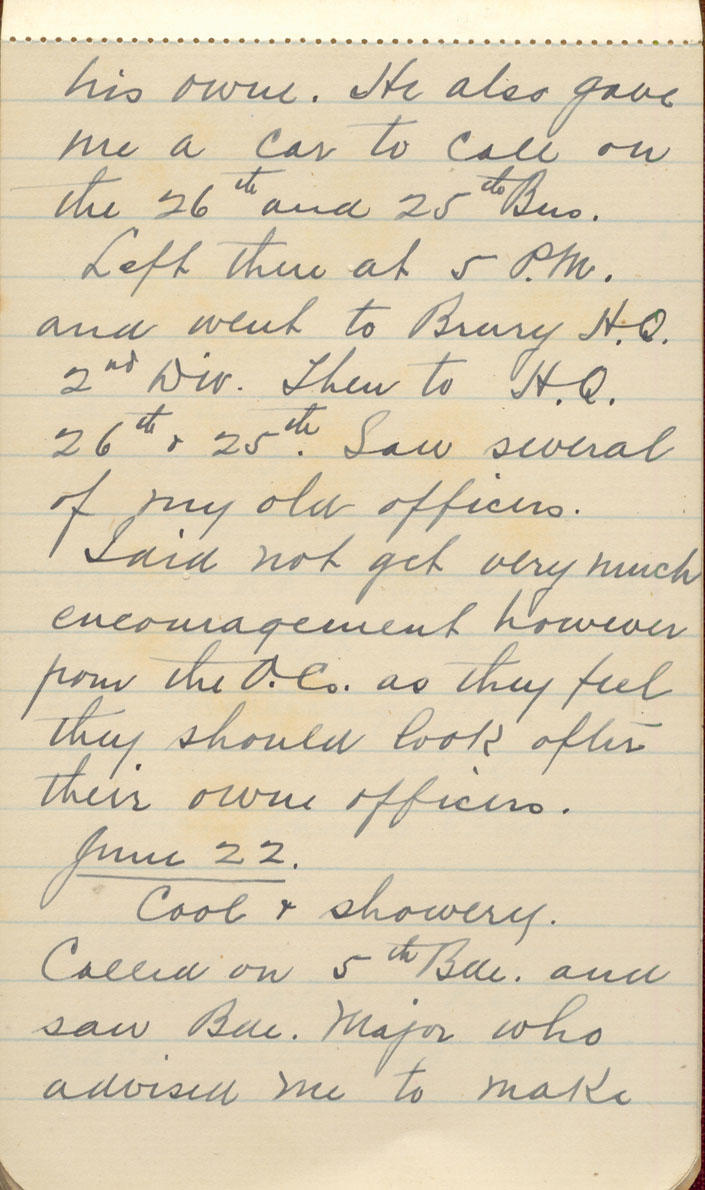 his owne. He also gave
me a car to call on
the 26th and 25th Bns.
Left there at 5 P.M.
and went to Bruay H.Q.
2nd Div. Then to H.Q.
26th & 25th. Saw several
of my old officers.
Did not get very much
encouragement however
from the O.Cs. as they feel
they should look after
their owne officers.
June 22.
Cool & showery.
Called on 5th Bde. and
saw Bde. Major who
advised me to make